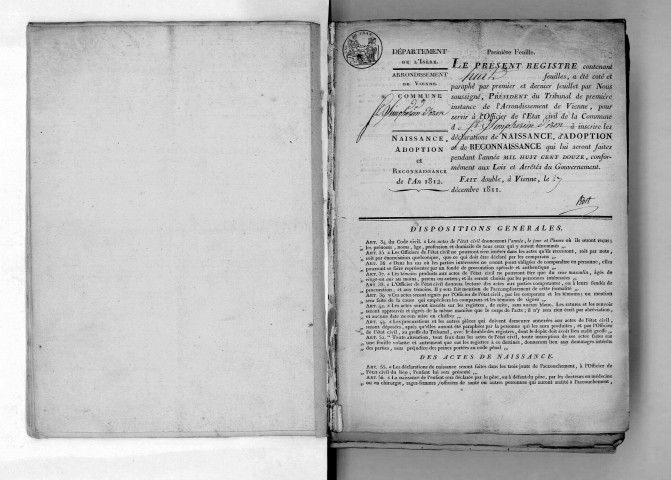 DÉPARTEMENT
DE L'ISÈRE.
ARRONDISSEMENT
DE VIENNE.
COMMUNE
de
St Simphorien d'ozon
NAISSANCE,
ADOPTION
et
RECONNAISSANCE
de l'An 1812.
Première Feuille.
LE PRÉSENT REGISTRE contenant
huit feuilles, a été coté et
paraphé par premier et dernier feuillet par Nous
soussigné, PRÉSIDENT du Tribunal de première
instance de l'Arrondissement de Vienne, pour
servir à l'Officier de l'Etat civil de la Commune
d e St Simphorien d'ozon à inscrire les
déclarations de NAISSANCE, d'ADOPTION
et de RECONNAISSANCE qui lui seront faites
pendant l'année MIL HUIT CENT DOUZE, confor-
mément aux Lois et Arrêtés du Gouvernement.
FAIT double, à Vienne, le 27
décembre 1811.
DISPOSITIONS GÉNÉRALES.
ART. 34. du Code civil. « Les actes de l'état civil énonceront l'année, le jour et l'heure où ils seront reçus;
les prénoms, noms, âge, profession et domicile de tous ceux qui y seront dénommés »
ART. 35. « Les Officiers de l'état civil ne pourront rien insérer dans les actes qu'ils recevront, soit par note,
soit par énonciation quelconque, que ce qui doit être déclaré par les comparans »
ART. 36. « Dans les cas où les parties intéressées ne seront point obligées de comparaître en personne, elles
pourront se faire représenter par un fondé de procuration spéciale et authentique »
ART. 37. « Les témoins produits aux actes de l'état civil ne pourront être que du sexe masculin, âgés de
vingt-un ans au moins, parens ou autres; et ils seront choisis par les personnes intéressées »
ART. 38. « L'Officier de l'état civil donnera lecture des actes aux parties comparantes, ou à leurs fondés de
procuration, et aux témoins. Il y sera fait mention de l'accomplissement de cette formalité »
ART. 39. « Ces actes seront signés par l'Officier de l'état civil, par les comparans et les témoins; ou mention
sera faite de la cause qui empêchera les comparans et les témoins de signer »
ART. 42. « Les actes seront inscrits sur les registres, de suite, sans aucun blanc. Les ratures et les renvois
seront approuvés et signés de la même manière que le corps de l'acte; il n'y sera rien écrit par abréviation,
et aucune date ne sera mise en chiffres »
ART. 44. « Les procurations et les autres pièces qui doivent demeurer annexées aux actes de l'état civil,
seront déposées, après qu'elles auront été paraphées par la personne qui les aura produites, et par l'Officier
de l'état civil, au greffe du Tribunal, avec le double des registres, dont le dépôt doit avoir lieu audit greffe »
ART. 52. « Toute altération, tout faux dans les actes de l'état civil, toute inscription de ces actes faite sur
une feuille volante et autrement que sur les registres à ce destinés, donneront lieu aux dommages intérêts
des parties, sans préjudice des peines portées au code pénal »
DES ACTES DE NAISSANCE.
ART. 55. « Les déclarations de naissance seront faites dans les trois jours de l'accouchement, à l'Officier de
l'état civil du lieu; l'enfant lui sera présenté »
ART. 56. « La naissance de l'enfant sera déclarée par le père, ou à défaut du père, par les docteurs en médecine
ou en chirurgie, sages-femmes, officiers de santé ou autres personnes qui auront assisté à l'accouchement,